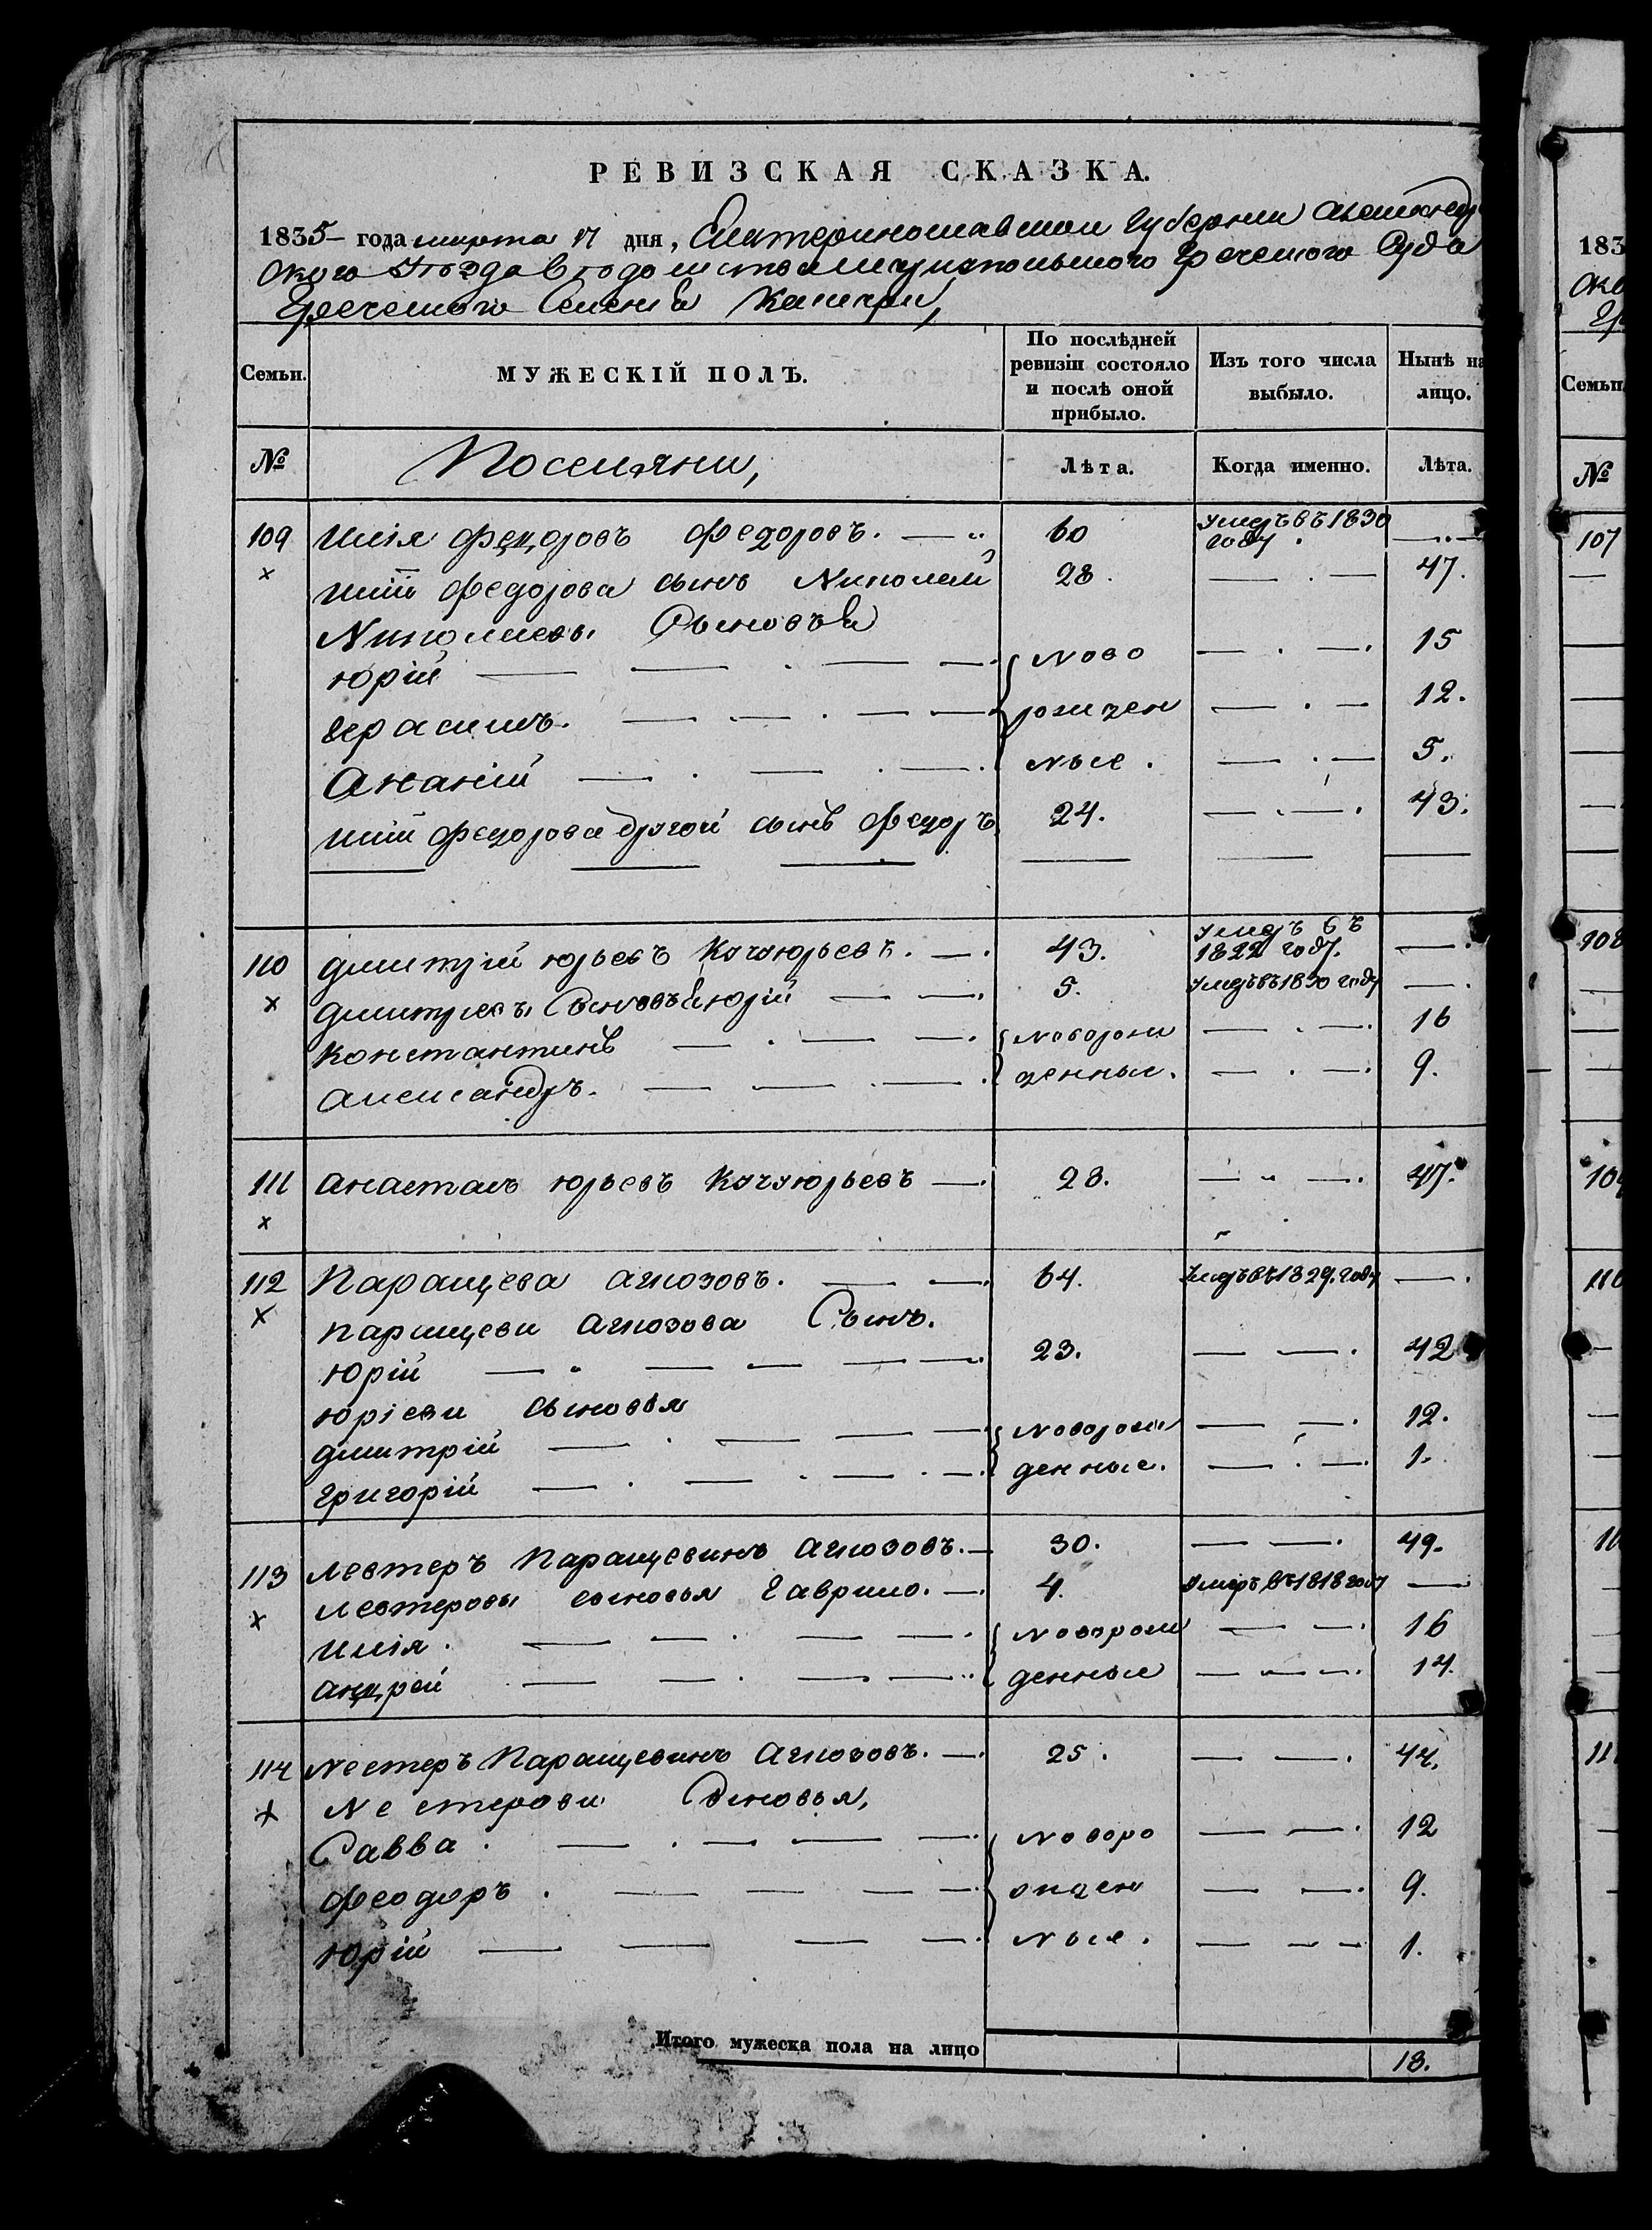 РЕВИЗСКАЯ СКАЗКА.
1835 года марта 17 дня, Екатеринославской Губернии Александр
ского Уезда Ведомства Мариупольского Греческого Суда
Греческого Селенія
Семьи.
МУЖЕСКІЙ ПОЛЪ.
По послѣдней ревизіи состояло и послѣ оной прибыло.
Изъ того числа выбыло.
Нынѣ на лицо.
№
Поселяни,
Лѣта.
Когда именно.
Лѣта.
109 Илія Федоровъ Федоровъ. 60 Умеръ въ 1830 году
× Иліи Федорова сынъ Николай 28. 47.
Николаевы Сыновья
Юрій Ново 15
Герасимъ. рожден 12.
Ананій ные. 5.
Иліи Федорова другой сынъ Федоръ 24. 43.
110 Дмитрій Юрьевъ Кучуюрьевъ. 43. Умеръ въ 1822 году.
× Дмитріевы Сыновья Юрій 5. Умеръ въ 1830 году
Константинъ Новорож 16
Александръ. денные. 9.
111 Анастасъ Юрьевъ Кучуюрьевъ 28. 47.
×
112 Паращева Агпозовъ. 64. Умеръ въ 1829. году
× Паращеви Агпозова Сынъ.
Юрій 23. 42
Юріеви сыновья
Дмитрій Новорож 12.
Григорій денные. 1.
113 Левтеръ Паращевинъ Агпозовъ. 30. 49.
× Левтеровы сыновья Гаврило. 4. Умеръ въ 1818 году
Илія. Новорож 16
Андрей денные 14.
114 Нестеръ Паращевинъ Агпозовъ. 25. 44.
× Нестерови Сыновья,
Савва. Новоро 12
Феодоръ. жден 9.
Юрій ные. 1.
Итого мужеска пола на лицо 18.
183
Семьи
№
107
108
109
110